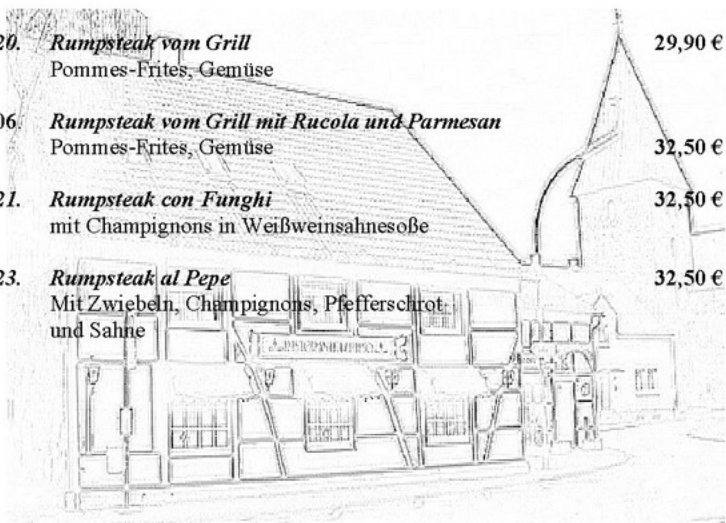 20. Rumpsteak vom Grill 29,90 €
Pommes-Frites, Gemüse
06. Rumpsteak vom Grill mit Rucola und Parmesan
Pommes-Frites, Gemüse 32,50 €
21. Rumpsteak con Funghi 32,50 €
mit Champignons in Weißweinsahnesoße
23. Rumpsteak al Pepe 32,50 €
Mit Zwiebeln, Champignons, Pfefferschrot
und Sahne